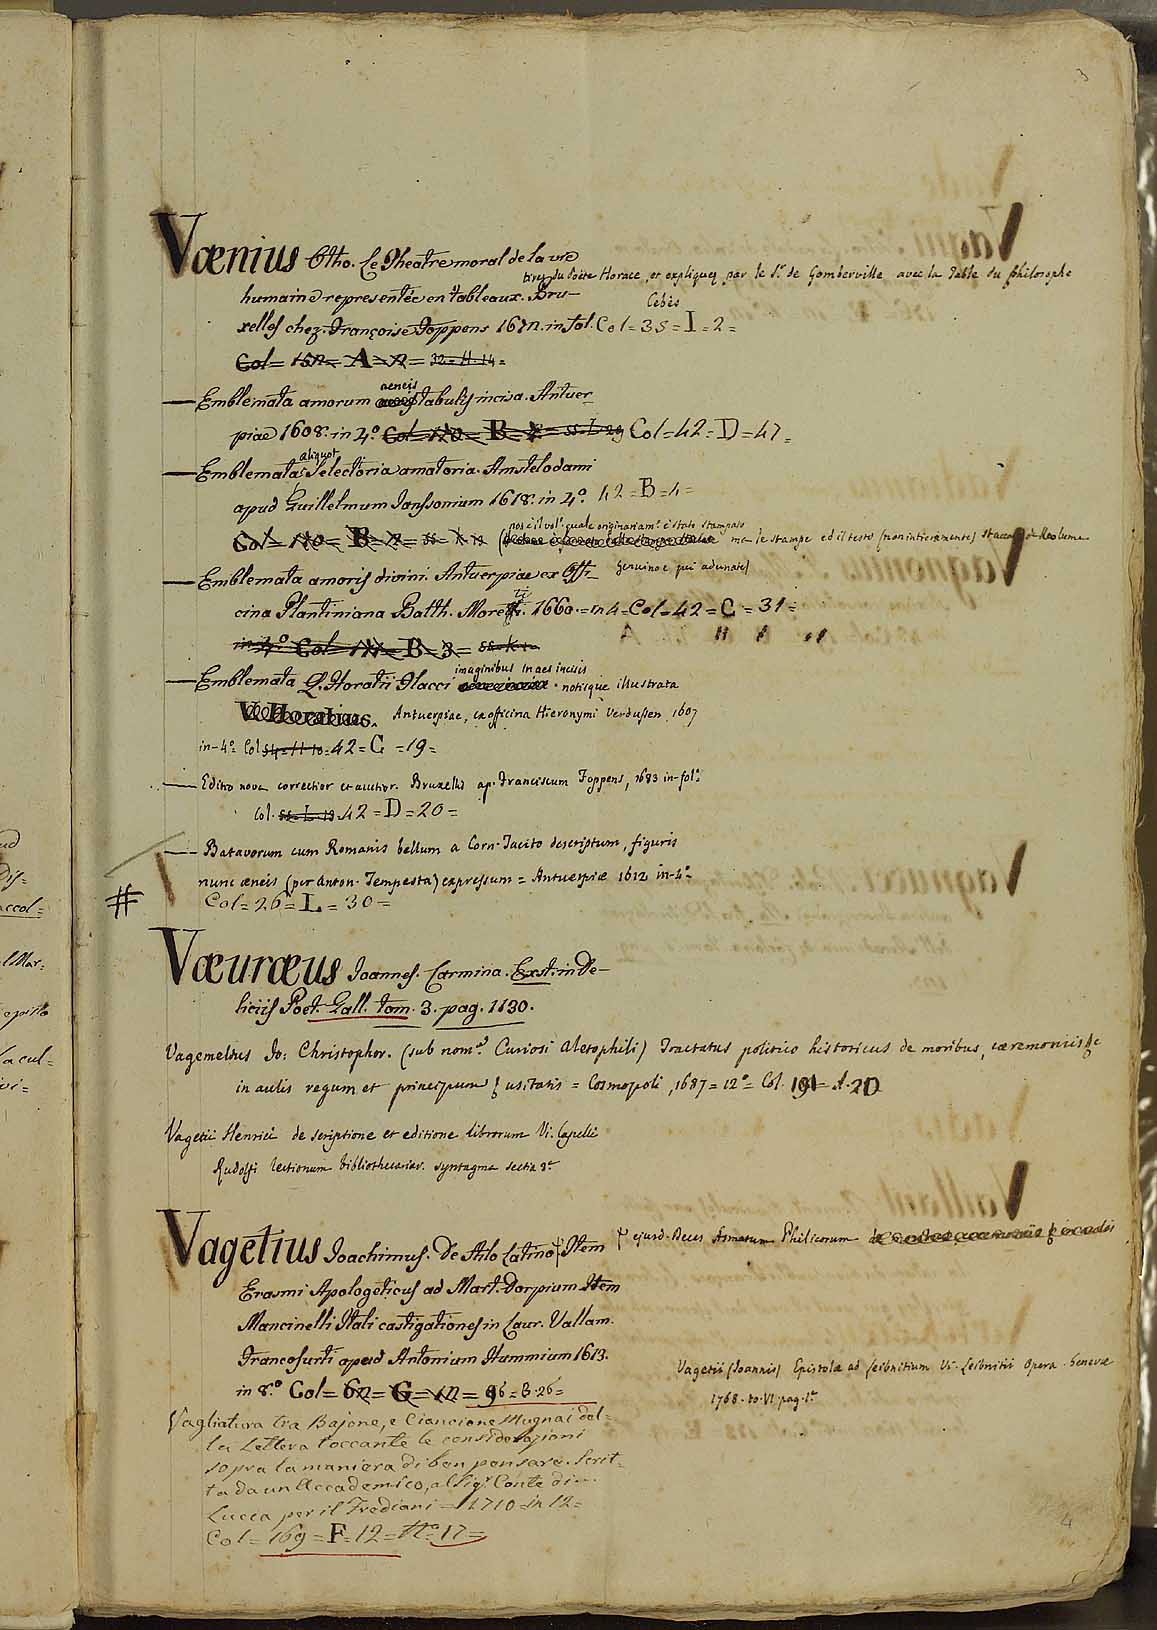 3
Vænius Otho. Le Theatre moral de la vie
tirez du Poëte Horace, et expliquez par le Sr. de Gomberville avec la Table du philosophe
Cebès
humaine representée en tableaux. Bru-
xelles chez. Françoise Foppens 1672. in fol. Col = 35 = I = 2 =
Col = 152 = A = 2 = 32 = H. 14 =
— Emblemata amorum aeneis tabulis incisa. Antuer
piae 1608. in 4.º Col = 42 = D = 47 =
— Emblemata aliquot Selectiora amatoria. Amstelodami
apud Guillelmum Ianssonium 1618. in 4.º 42 = B = 4 =
nos è il vol. quale originariam.e è stato stampato
Col = 120 = B = 2 = ma le stampe ed il testo (non intieramente) staccati di Volume
Genuino e qui adunate)
— Emblemata amoris divini. Antuerpiae ex Offi-
cina Plantiniana Balth. Moreti. 1660. = in 4 = Col = 42 = C = 31 =
in 4.º Col = B = 3 =
— Emblemata Q. Horatii Flacci imaginibus in aes incisis notisque illustrata
V. Horatius. Antuerpiae, ex officina Hieronymi Verdussen 1607
in-4.º Col 42 = C = 19 =
— Editio nova correctior et auctior. Bruxellis ap. Franciscum Foppens, 1683 in-fol.º
Col. 42 = D = 20 =
— Batavorum cum Romanis bellum a Corn. Tacito descriptum, figuris
nunc æneis (per Anton. Tempesta) expressum = Antuerpiæ 1612 in-4.º
# Col = 26 = L = 30 =
Væuræus Joannes. Carmina. Exst. in De-
liciis Poet. Gall. tom. 3. pag. 1130.
Vagemeldus Jo: Christophor. (sub nom.e Curiosi Aletophili) Tractatus politico historicus de moribus, cæremoniis &c
in aulis regum et principum usitatis = Cosmopoli, 1687 = 12º = Col. 191 = A. 20
Vagetii Henrici de scriptione et editione librorum Vi. Capelli
Rudolfi lectionum bibliothecariar. syntagma sectio 3.ª
Vagetius Ioachimus. De Stilo Latino Item ejusd. Decus Armatum Philicorum
Erasmi Apologeticus ad Mart. Dorpium Item
Mancinelli Itali castigationes in Laur. Vallam.
Francofurti apud Antonium Hummium 1613.
in 8.º Col = 62 = G = 12 = 96 = B. 26 =
Vagetii (Joannis) Epistolæ ad Leibnitium Vi. Leibnitii Opera. Genevæ
1768. to. VI pag. 1.ª
Vagliatura tra Bajone, e Ciancione Mugnai del-
la Lettera toccante le considerazioni
sopra la maniera di ben pensare. Scrit-
ta da un Accademico, al Sig.r Conte di ...
Lucca per il Frediani = 1710 = in 12 =
Col = 169 = F = 12 = N.º 17 =
4